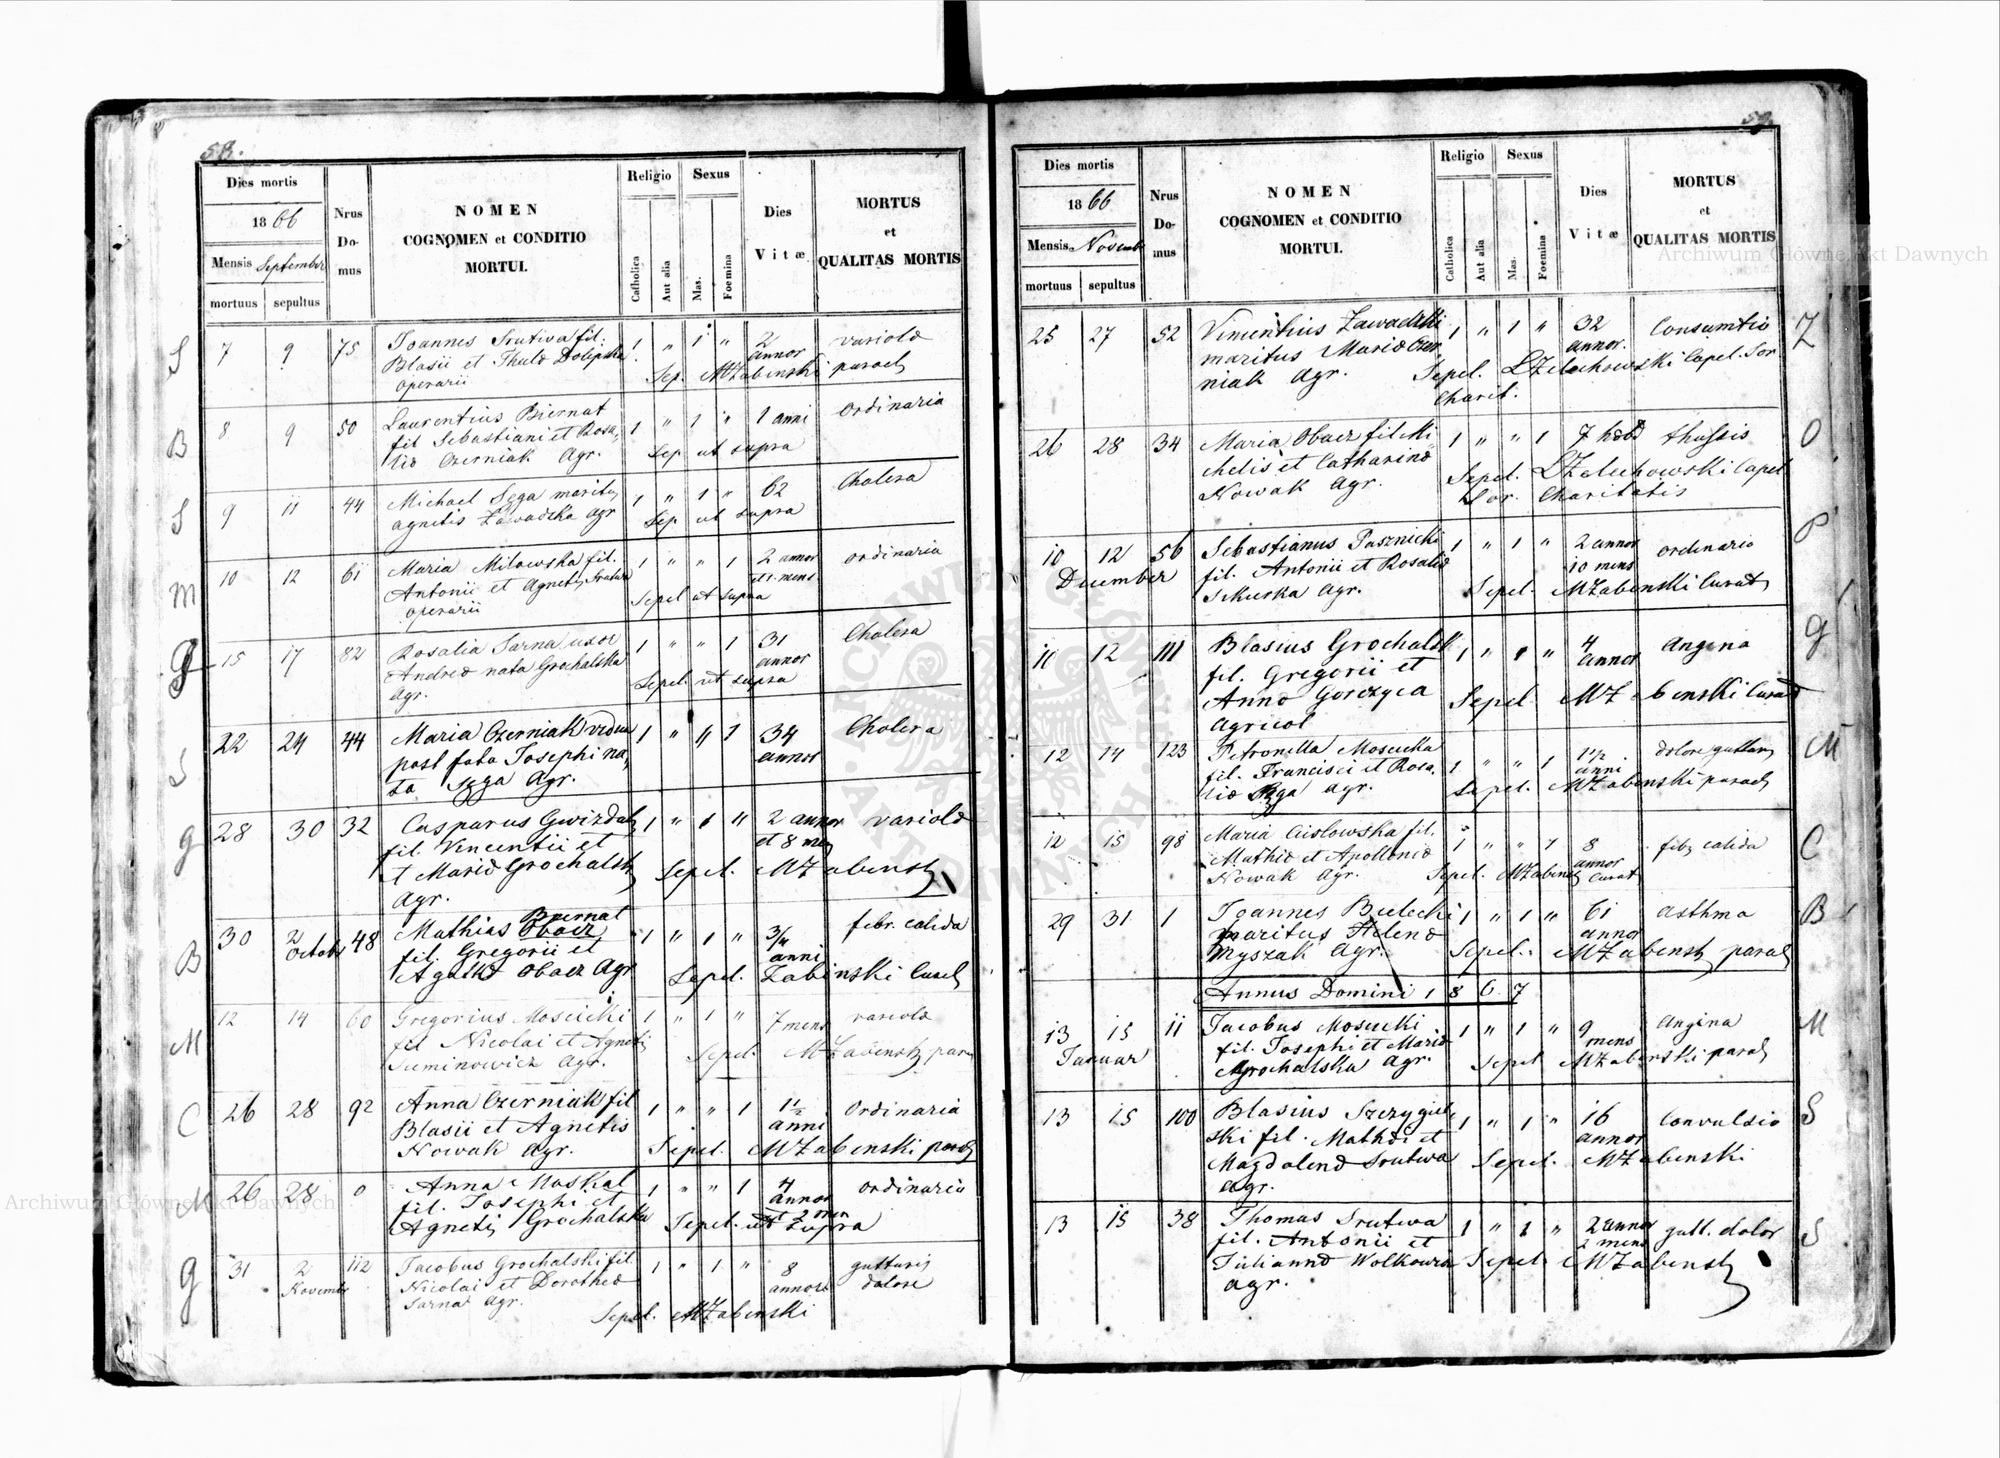 58.
Dies mortis
1866
Mensis September
mortuus sepultus
Nrus Domus
NOMEN
COGNOMEN et CONDITIO
MORTUI.
Religio
Catholica
Aut alia
Sexus
Mas.
Foemina
Dies
Vitæ
MORTUS
et
QUALITAS MORTIS
S 7 9 75 Joannes Srutwa fil. 1 " 1 " 2 annor variola
Blasii et Thecla
operarii Sep. MZabenski paroch
B 8 9 50 Laurentius Biernat 1 " 1 " 1 anni ordinaria
fil Sebastiani et Rosa,
lia Czerniak Agr. Sep ut supra
S 9 11 44 Michael Sęga maritus 1 " 1 " 62 Cholera
Agnetis Zawadzka agr Sep ut supra
M 10 12 61 Maria Milowska fil. 1 " " 1 2 annor et 1 mens ordinaria
Antonii et Agnetis Srutwa
operarii Sepel ut supra
15 17 82 Rosalia Sarna uxor 1 " " 1 31 annor Cholera
Andreæ nata Grochalska
Agr. Sepel ut supra
S 22 24 44 Maria Czerniak vidua 1 " " 1 34 annor Cholera
post fata Josephi na,
ta Sęga Agr.
G 28 30 32 Casparus Gwizdak 1 " 1 " 2 annor et 8 men variola
fil. Vincentii et
et Maria Grochalsk
Agr. Sepel. MZabensk
B 30 2 Octobr 48 Mathias Obacz Biernat 1 " 1 " 3/4 anni febr. calida
fil. Gregorii et
Agatha Obacz Agr Sepel. Zabinski
M 12 14 60 Gregorius Moscicki 1 " 1 " 7 mens variola
fil Nicolai et Agnetis
Suminowicz Agr. Sepel. MZabensk par
C 26 28 92 Anna Czerniak fil 1 " " 1 1 1/2 anni Ordinaria
Blasii et Agnetis
Nowak Agr. Sepel. MZabenski paroch
M 26 28 0 Anna Maskal 1 " " 1 4 annor et 2 men ordinaria
fil. Josephi et
Agnetis Grochalska Sepel. ut supra
G 31 2 Novembr 112 Jacobus Grochalski fil. 1 " 1 " 8 annor gutturis dolore
Nicolai et Dorothea
Sarna Agr. Sepel. MZabenski
59.
Dies mortis
1866
Mensis Novemb
mortuus sepultus
Nrus Domus
NOMEN
COGNOMEN et CONDITIO
MORTUI.
Religio
Catholica
Aut alia
Sexus
Mas.
Foemina
Dies
Vitæ
MORTUS
et
QUALITAS MORTIS
25 27 52 Vincentius Zawadzki 1 " 1 " 32 annor. Consumtio Z
maritus Maria Czer,
niak Agr. Sepel. LZelechowski Capel. Sor.
Charit.
26 28 34 Maria Obacz fil Mi 1 " " 1 7 hebd thussis O
chelis et Catharina
Nowak Agr. Sepel. LZelechowski Capel
Sor. Charitatis
10 12 56 Sebastianus Pasznicki 1 " 1 " 2 annor 10 mens ordinaria P
December
fil. Antonii et Rosalia
Sikurka Agr. Sepel. MZabenski Curat
11 12 111 Blasius Grochalsk 1 " 1 " 4 annor Angina G
fil. Gregorii et
Anna Gorczyca Sepel MZabenski Curat
Agricol
12 14 123 Petronella Moscicka 1 " " 1 1 1/2 anni dolore guttur M
fil. Francisci et Rosa,
lia Sęga agr. Sepel. MZabenski paroch
12 15 98 Maria Cislowska fil. 1 " " 1 8 annor febr calida C
Mathia et Apollonia
Nowak Agr. Sepel. MZabensk Curat
29 31 1 Joannes Bielecki 1 " 1 " 61 annor Asthma B
maritus Helena
Myszak Agr. Sepel. MZabensk paroch
Annus Domini 1867
13 15 11 Jacobus Moscicki 1 " 1 " 9 mens Angina M
Januar
fil. Josephi et Maria
Grochalska Agr. Sepel MZabenski paroch
13 15 100 Blasius Szczygiel, 1 " 1 " 16 annor Convulsio S
ski fil. Mathæi et
Magdalena Srutwa Sepel. MZabenski
agr.
13 15 38 Thomas Srutwa 1 " 1 " 2 annor 2 mens gutt. dolor S
fil. Antonii et
Julianna Wolkowicz Sepel MZabensk
agr.
Archiwum Główne Akt Dawnych
Archiwum Główne Akt Dawnych
ARCHIWUM GŁÓWNE AKT DAWNYCH